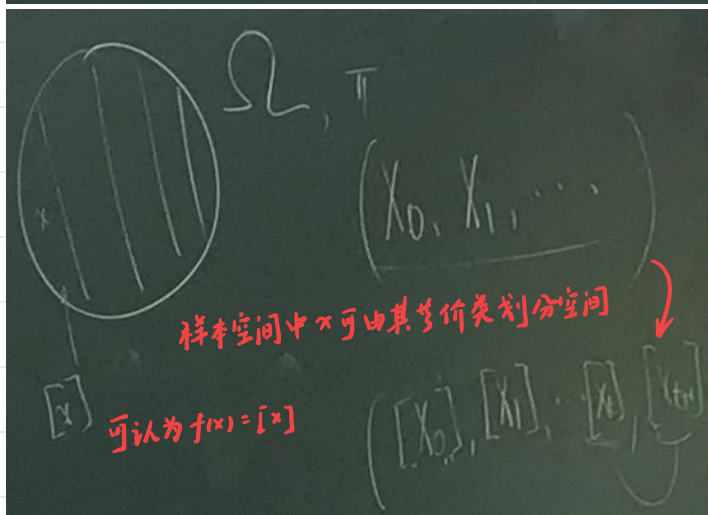 Ω, π
x
(X₀, X₁, ...)
样本空间中x可由其等价类划分空间
[x]
可认为f(x)=[x]
([X₀], [X₁], ...[Xₜ], [Xₜ₊₁]